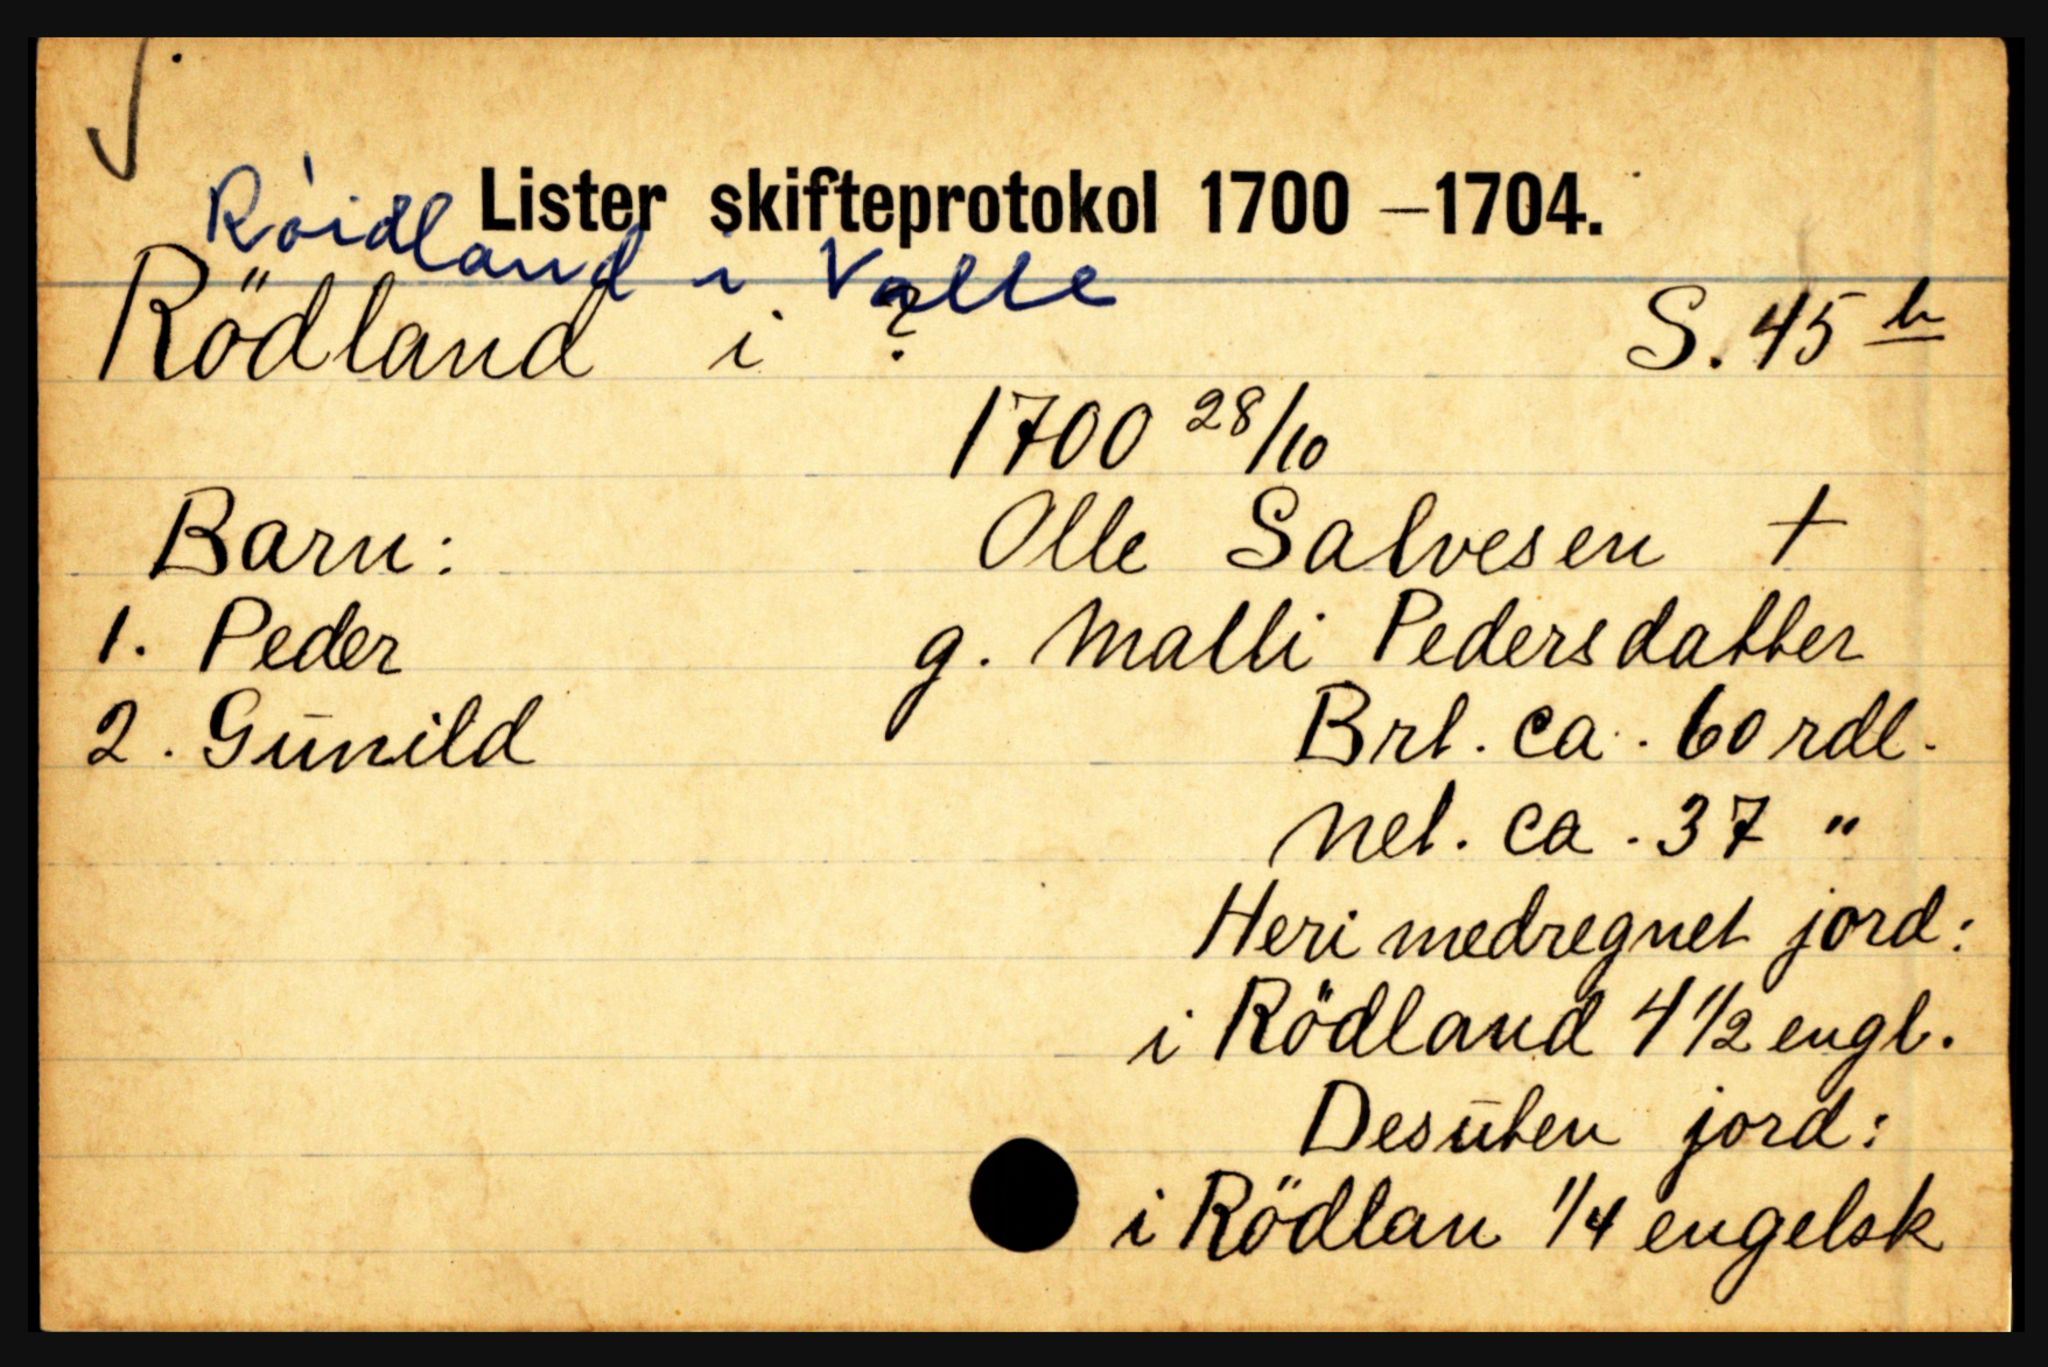 Lister skifteprotokol 1700 –1704.
Róidland i Valle
Rödland i ? S. 45 b
1700 28/10
Barn: Olle Salvesen +
1. Peder g. Malli Pedersdatter
2. Gūnild Brt. ca. 60 rdl.
Net. ca. 37 "
Heri medregnet jord:
i Rödland 4 1/2 engl.
Desūten jord:
i Rödlan 1/4 engelsk